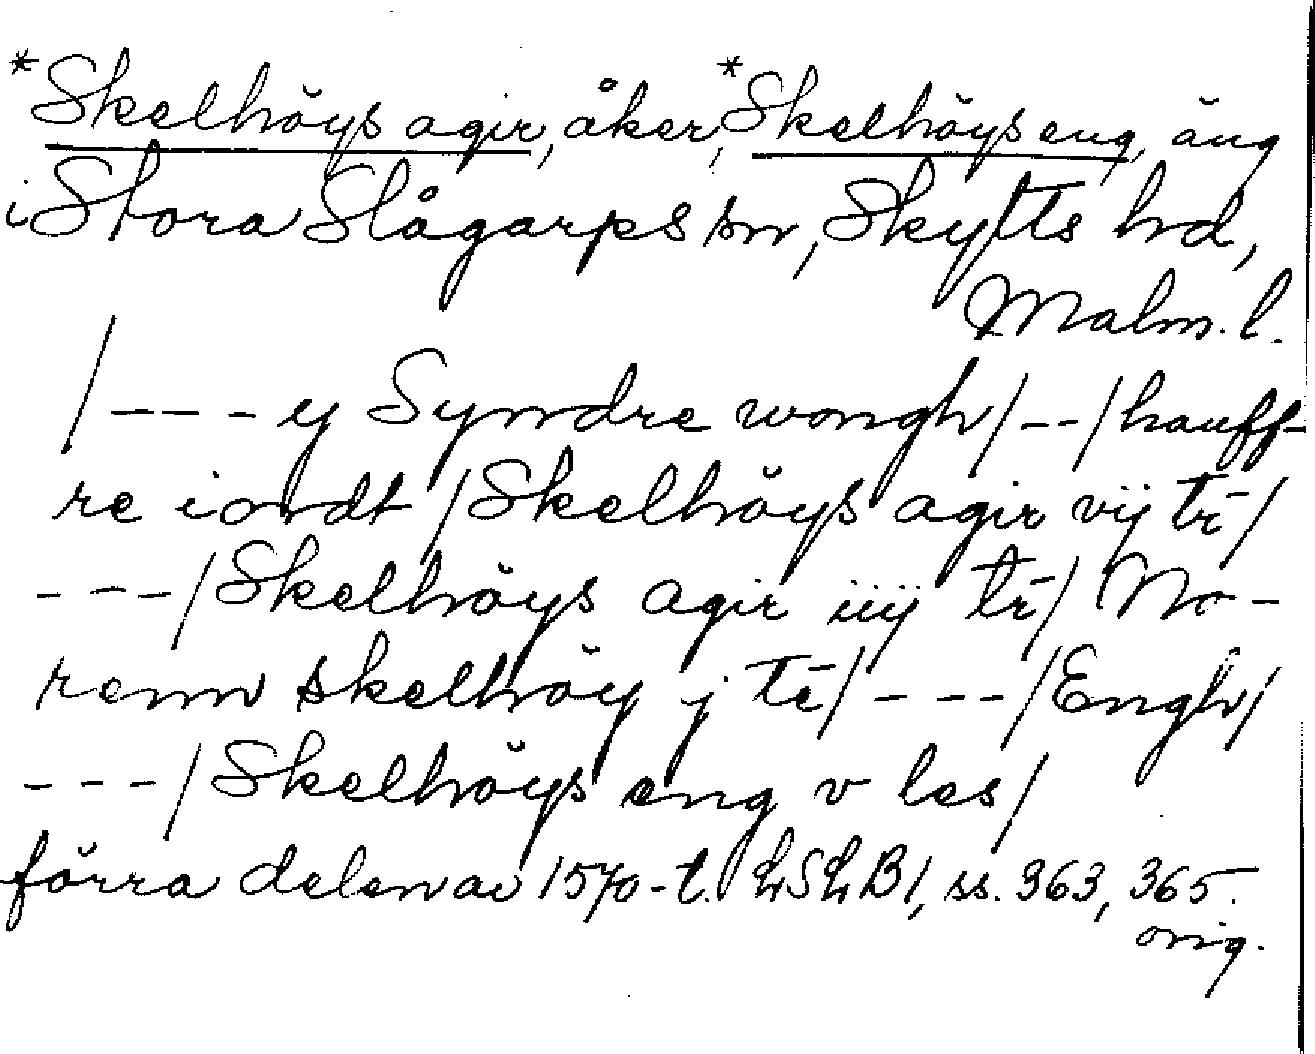 *Skelhöys agir, åker, *Skelhöys eng, äng
i Stora Slågarps sn, Skytts hd,
Malm. l.
/--- y Syndre wongh/--/hauff-
re iordt /Skelhöys agir vij tē/
---/Skelhöys agir iiij tē/ No-
renn skelhöy j tē/---/Engh/
---/Skelhöys eng v les/
förra delen av 1570-t. LSLB1, ss. 363, 365.
orig.